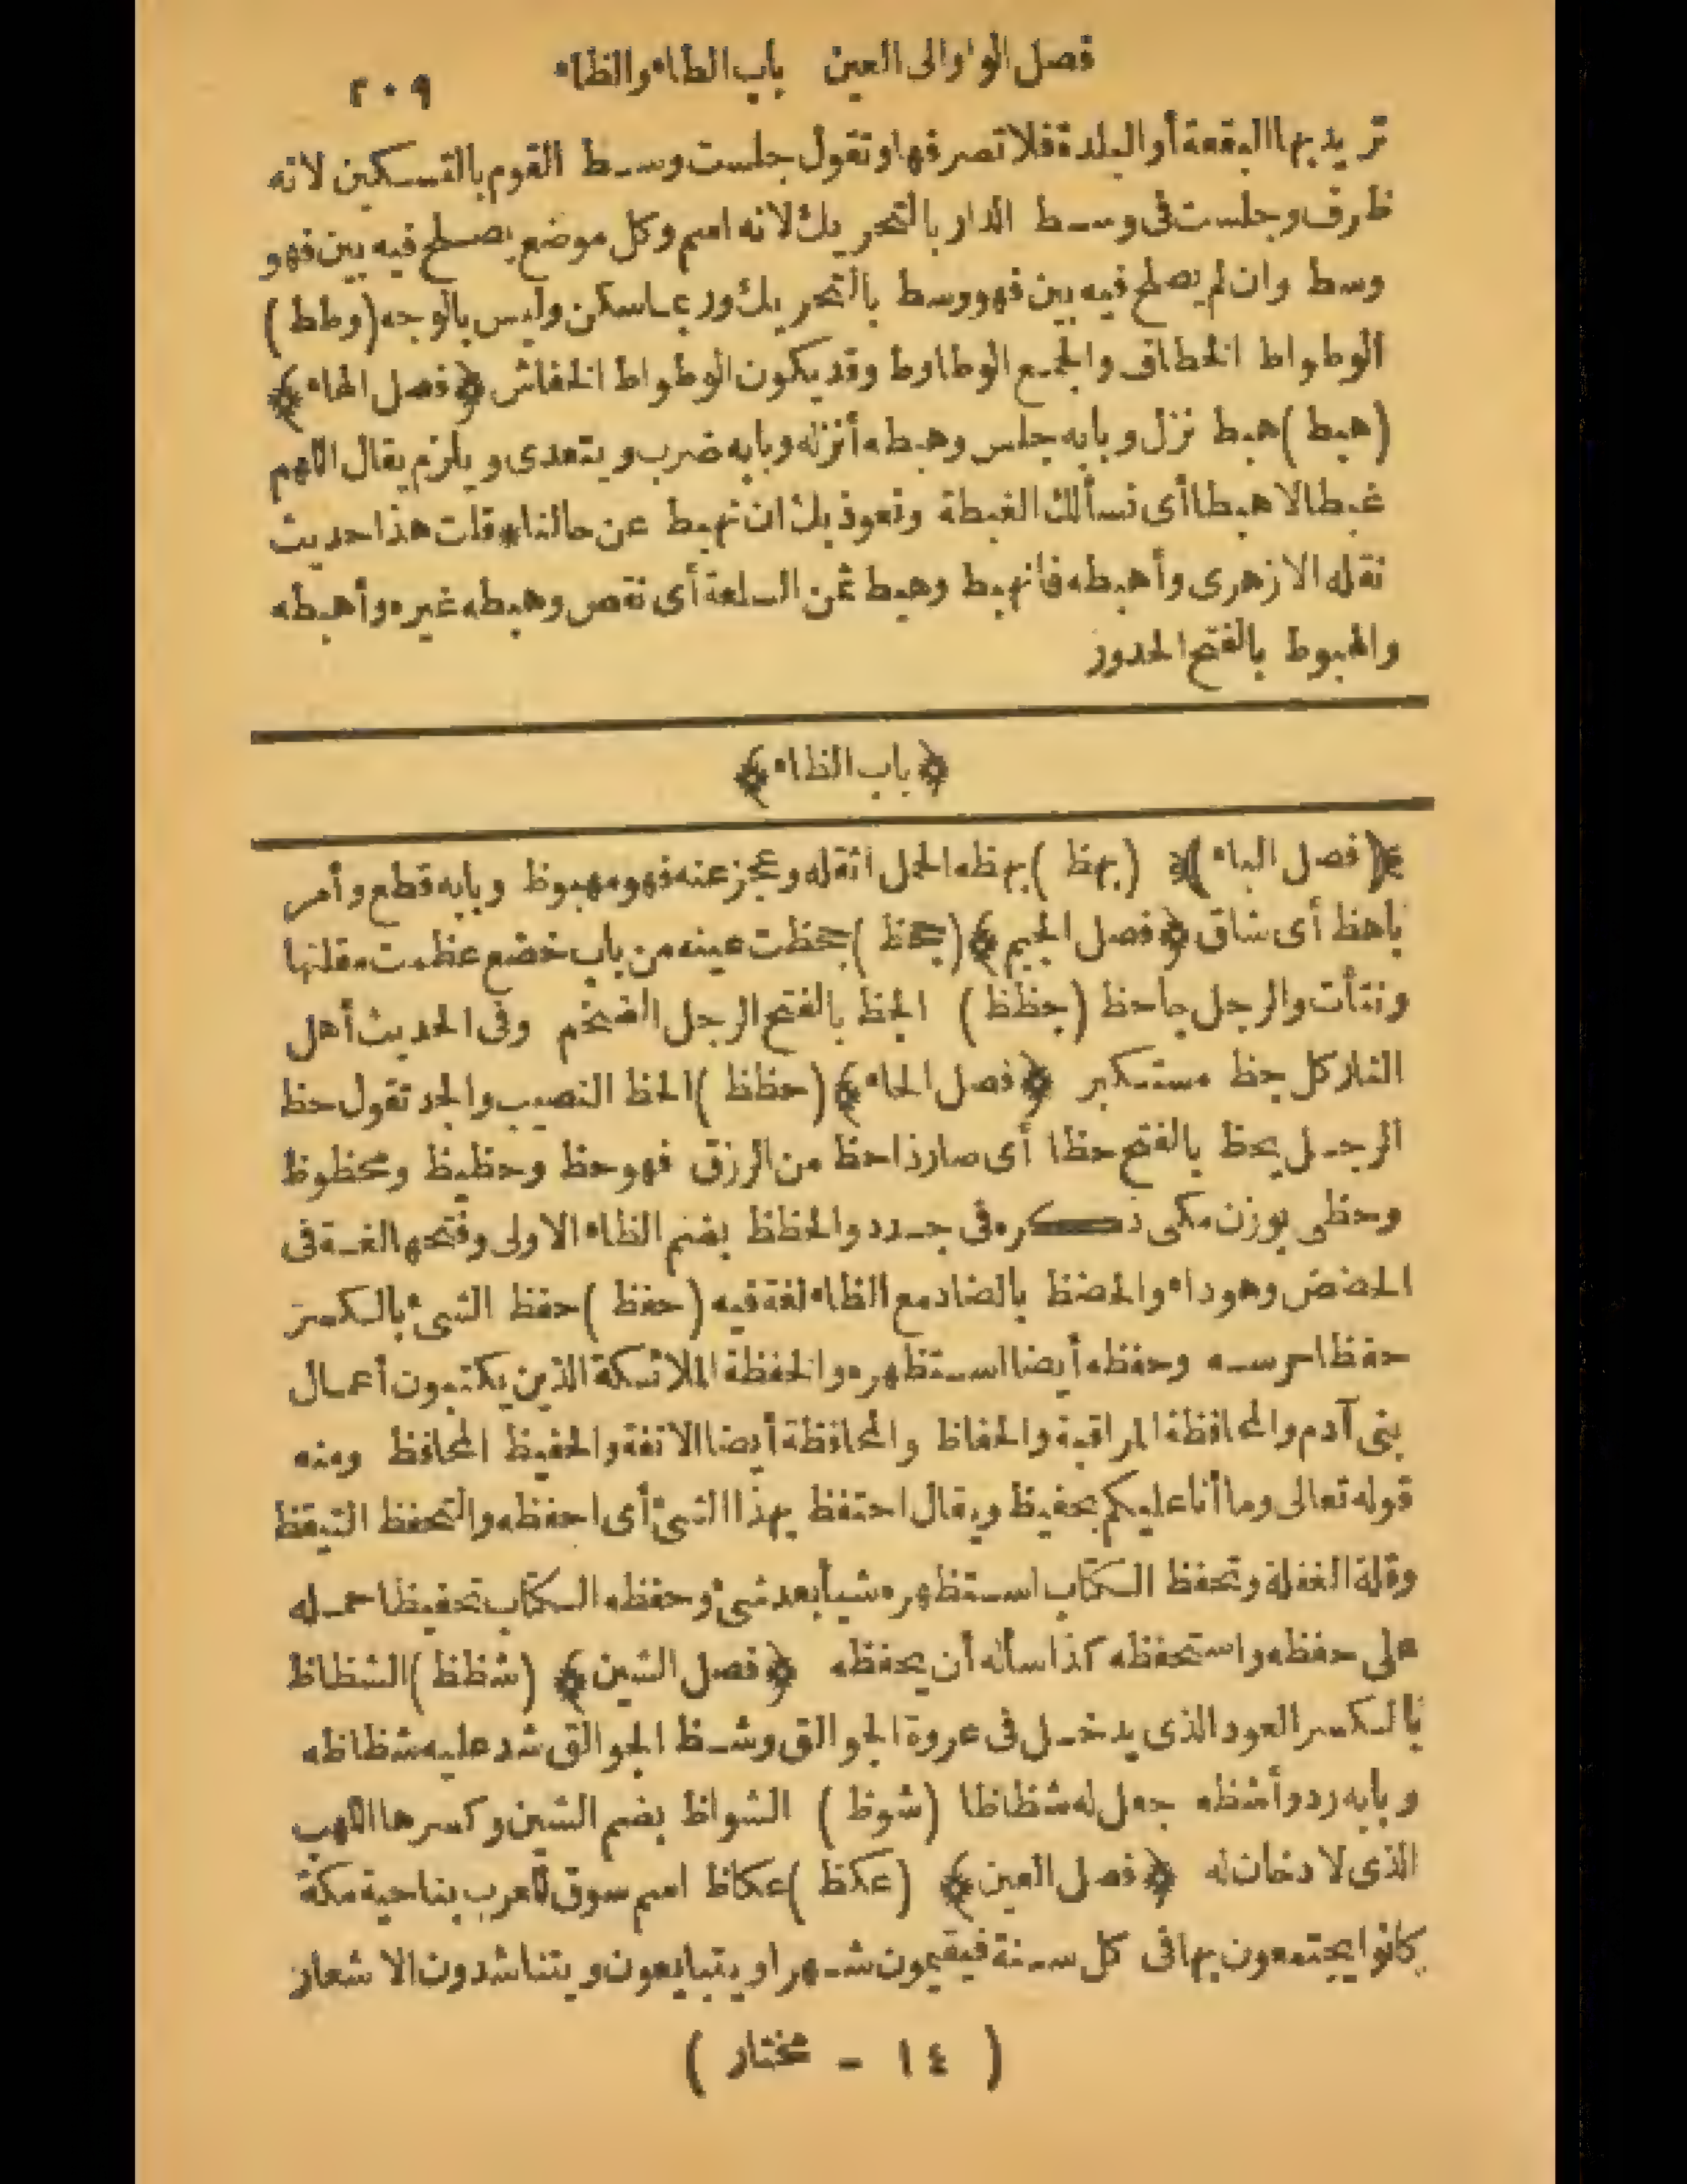 فصل الواوالى العين باب الطاء والظاء ٢٠٩
تريدبها البقعة أوالبلدة فلا تصرفها وتقول جلست وسط القوم بالتسكين لانه
ظرف وجلست فى وسط الدار بالتحريك لانه اسم وكل موضع يصلح فيه بين فهو
وسط وان لم يصلح فيه بين فهو وسط بالتحريك وربما سكن وليس بالوجه (وطط)
الوطواط الخطاف والجمع الوطاوط وقد يكون الوطواط الخفاش ﴿فصل الهاء﴾
(هبط) هبط نزل وبابه جلس وهبطه أنزله وبابه ضرب ويتعدى ويلزم يقال اللهم
غبطا لا هبطا أى نسألك الغبطة ونعوذ بك ان نهبط عن حالنا * قلت هذا حديث
نقله الازهرى وأهبطه فانهبط وهبط ثمن السلعة أى نقص وهبطه غيره وأهبطه
والهبوط بالفتح الحدور
﴿باب الظاء﴾
﴿(فصل الباء)﴾ (بهظ) بهظه الحمل اثقله وعجز عنه فهو مبهوظ وبابه قطع وأمر
باهظ أى شاق ﴿فصل الجيم﴾ (جحظ) جحظت عينه من باب خضع عظمت مقلتها
ونتأت والرجل جاحظ (جظظ) الجظ بالفتح الرجل الضخم وفى الحديث أهل
النار كل جظ مستكبر ﴿فصل الحاء﴾ (حظظ) الحظ النصيب والجد تقول حظ
الرجل يحظ بالفتح حظا أى صار ذا حظ من الرزق فهو حظ وحظيظ ومحظوظ
وحظى بوزن مكى ذكره فى جدد والحظظ بضم الظاء الاولى وفتحها لغة فى
الحضض وهو داء والحضظ بالضاد مع الظاء لغة فيه (حفظ) حفظ الشئ بالكسر
حفظا حرسه وحفظه أيضا استظهره والحفظة الملائكة الذين يكتبون أعمال
بنى آدم والمحافظة المراقبة والحفاظ والمحافظة أيضا الانفة والحفيظ المحافظ ومنه
قوله تعالى وما أنا عليكم بحفيظ ويقال احتفظ بهذا الشئ أى احفظه والتحفظ التيقظ
وقلة الغفلة وتحفظ الكتاب استظهره شيأ بعد شئ وحفظه الكتاب تحفيظا حمله
على حفظه واستحفظه كذا سأله أن يحفظه ﴿فصل الشين﴾ (شظظ) الشظاظ
بالكسر العود الذى يدخل فى عروة الجوالق وشظ الجوالق شد عليه شظاظه
وبابه رد وأشظه جعل له شظاظا (شوظ) الشواظ بضم الشين وكسرها اللهب
الذى لا دخان له ﴿فصل العين﴾ (عكظ) عكاظ اسم سوق للعرب بناحية مكة
كانوا يجتمعون بها فى كل سنة فيقيمون شهرا ويتبايعون ويتناشدون الاشعار
(١٤ - مختار)